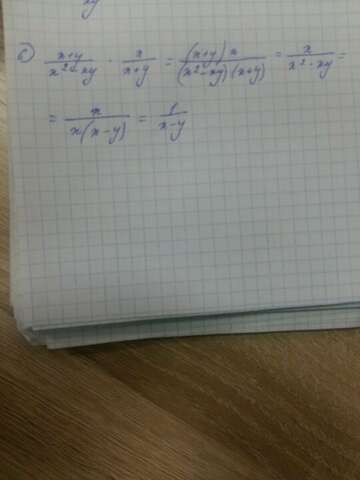 xy
б) \frac{x+y}{x^2-xy} \cdot \frac{x}{x+y} = \frac{(x+y)x}{(x^2-xy)(x+y)} = \frac{x}{x^2-xy} =
= \frac{x}{x(x-y)} = \frac{1}{x-y}